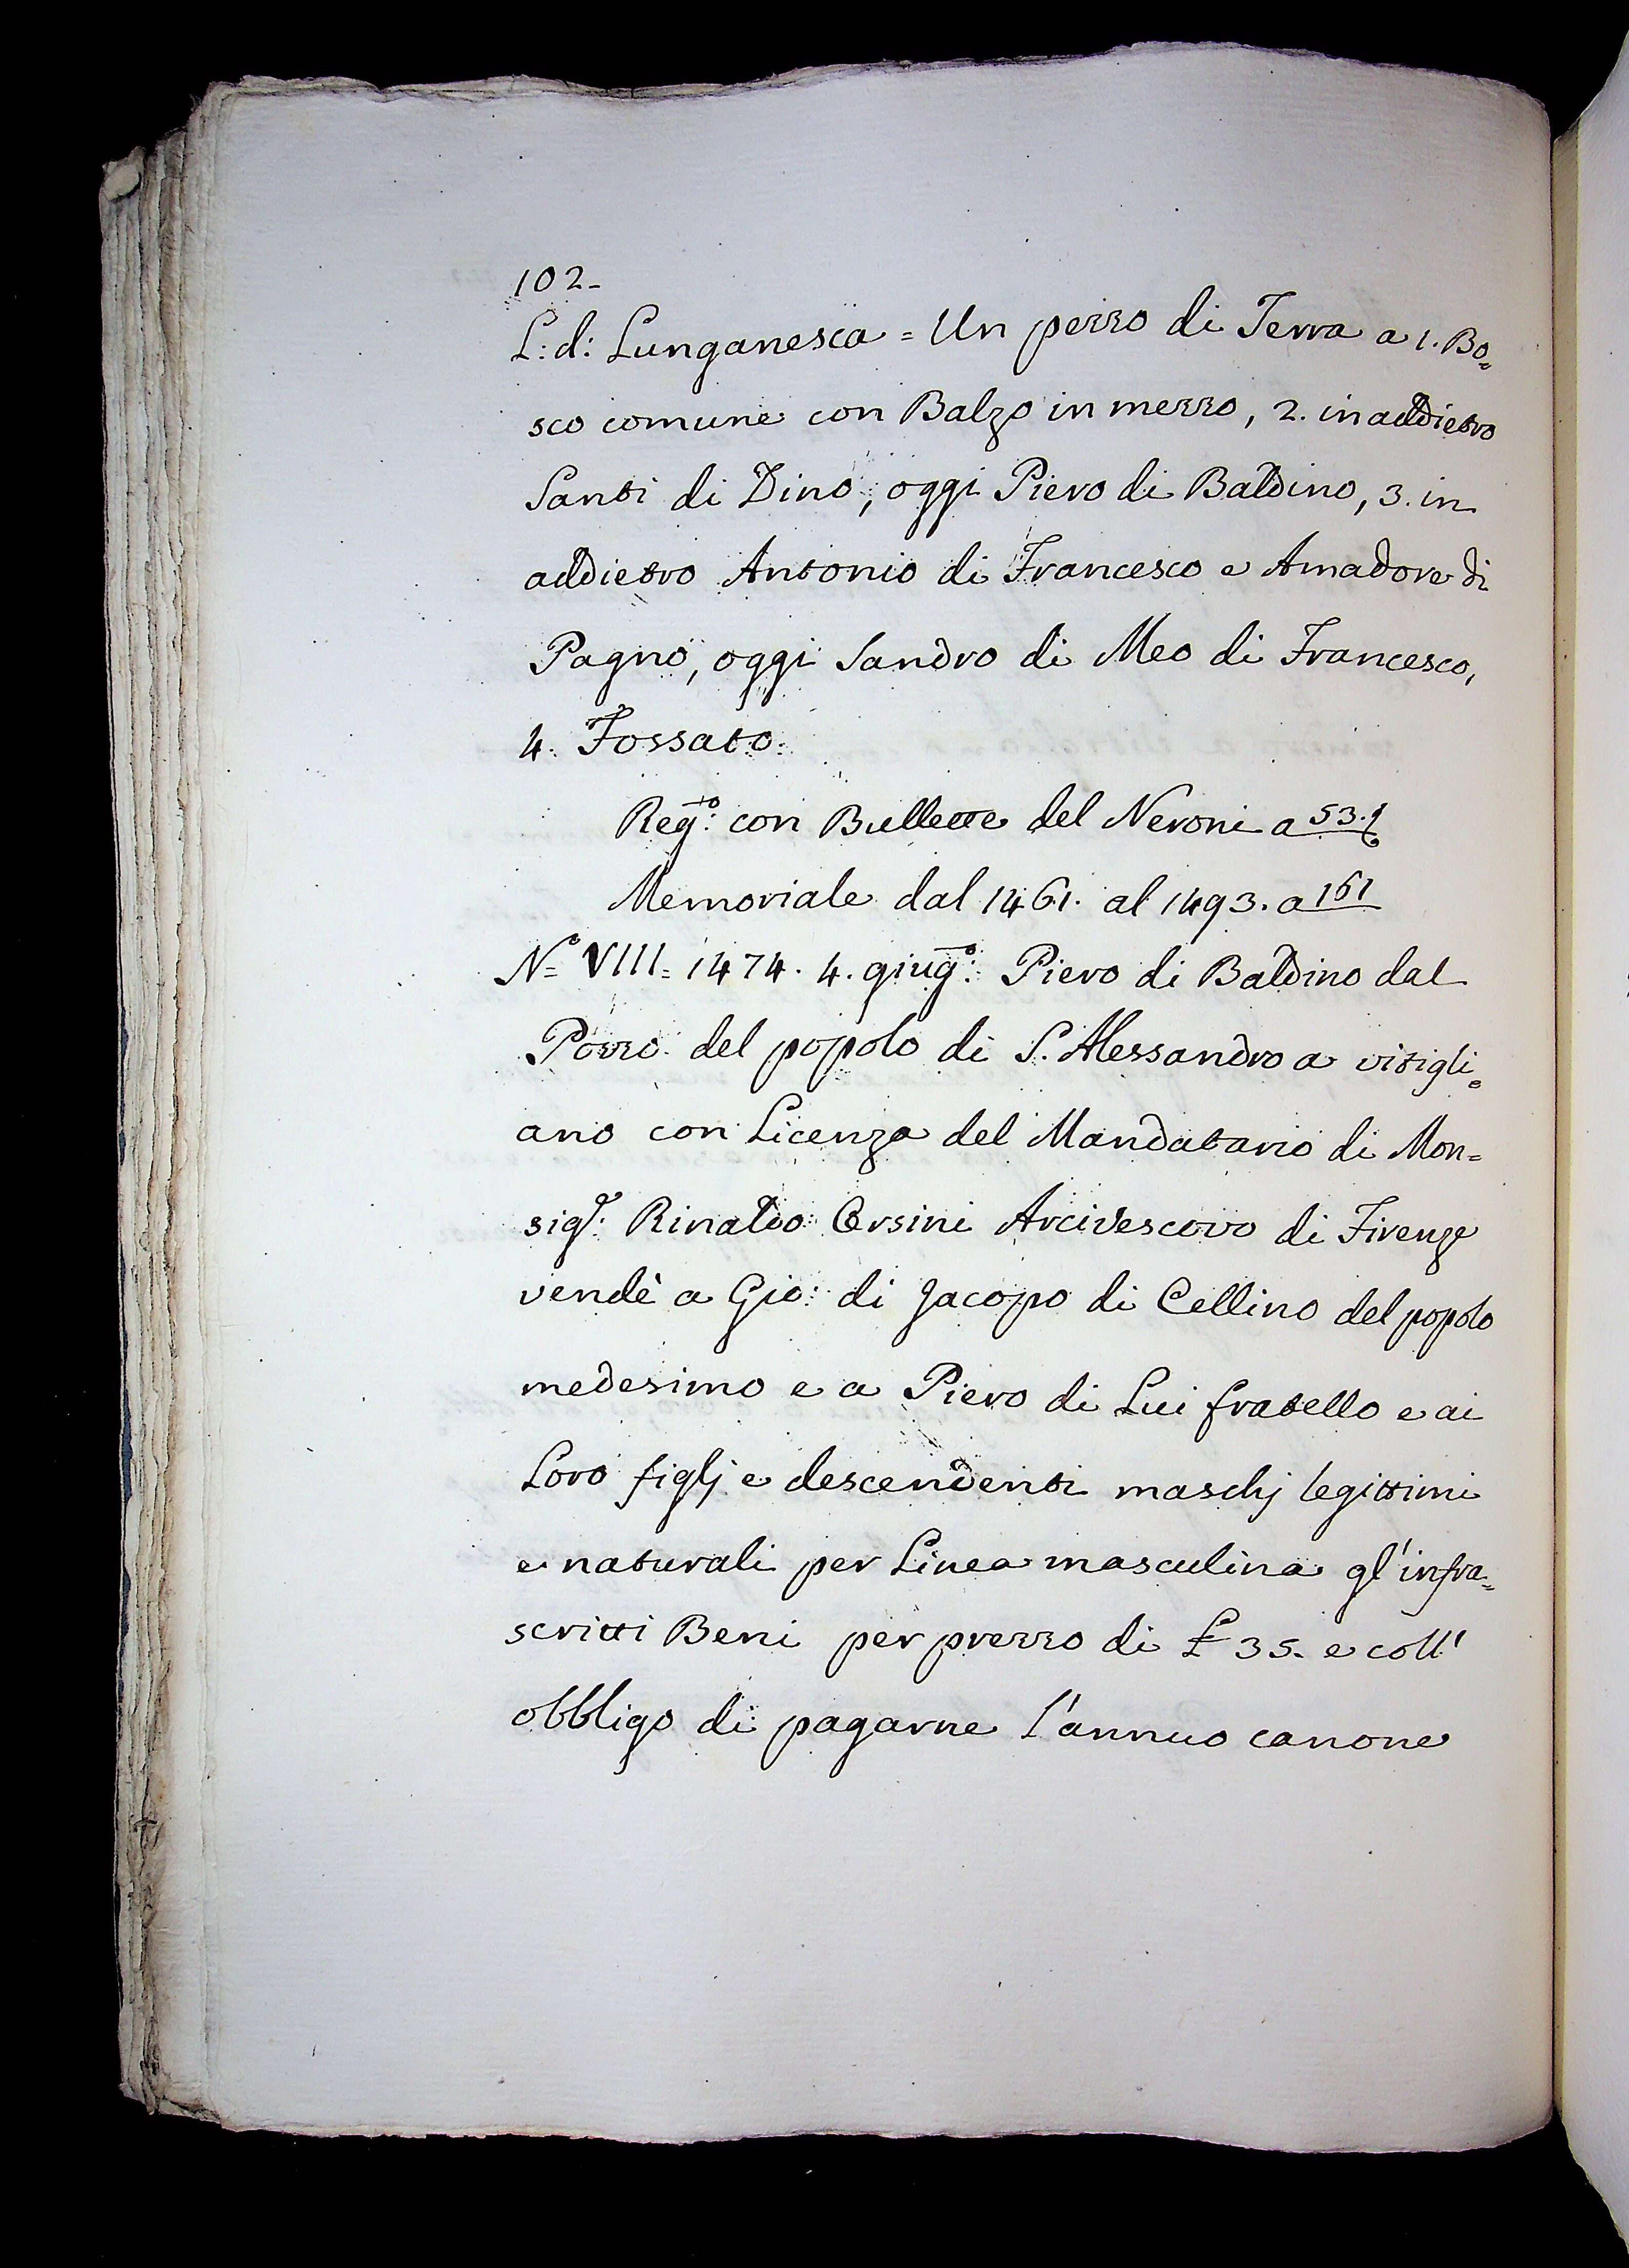 102-
L: d: Lunganesca = Un pezzo di Terra a 1. Bo=
sco comune con Balzo in mezzo, 2. in addietro
Santi di Dino, oggi Piero di Baldino, 3. in
addietro Antonio di Francesco e Amadore di
Pagno, oggi Sandro di Meo di Francesco,
4. Fossato.
Reg.to con Bullette del Neroni a 53.
Memoriale dal 1461. al 1493. a 161
N.° VIII = 1474. 4. giug.o: Piero di Baldino dal
Pozzo del popolo di S. Alessandro a vitigli=
ano con Licenza del Mandatario di Mon=
sig.r: Rinaldo Orsini Arcivescovo di Firenze
vendè a Gio: di Jacopo di Cellino del popolo
medesimo e a Piero di Lui fratello e ai
Loro figlj e descendenti maschj legittimi
e naturali per Linea masculina gl'infra=
scritti Beni per prezzo di £ 35. e coll'
obbligo di pagarne l'annuo canone